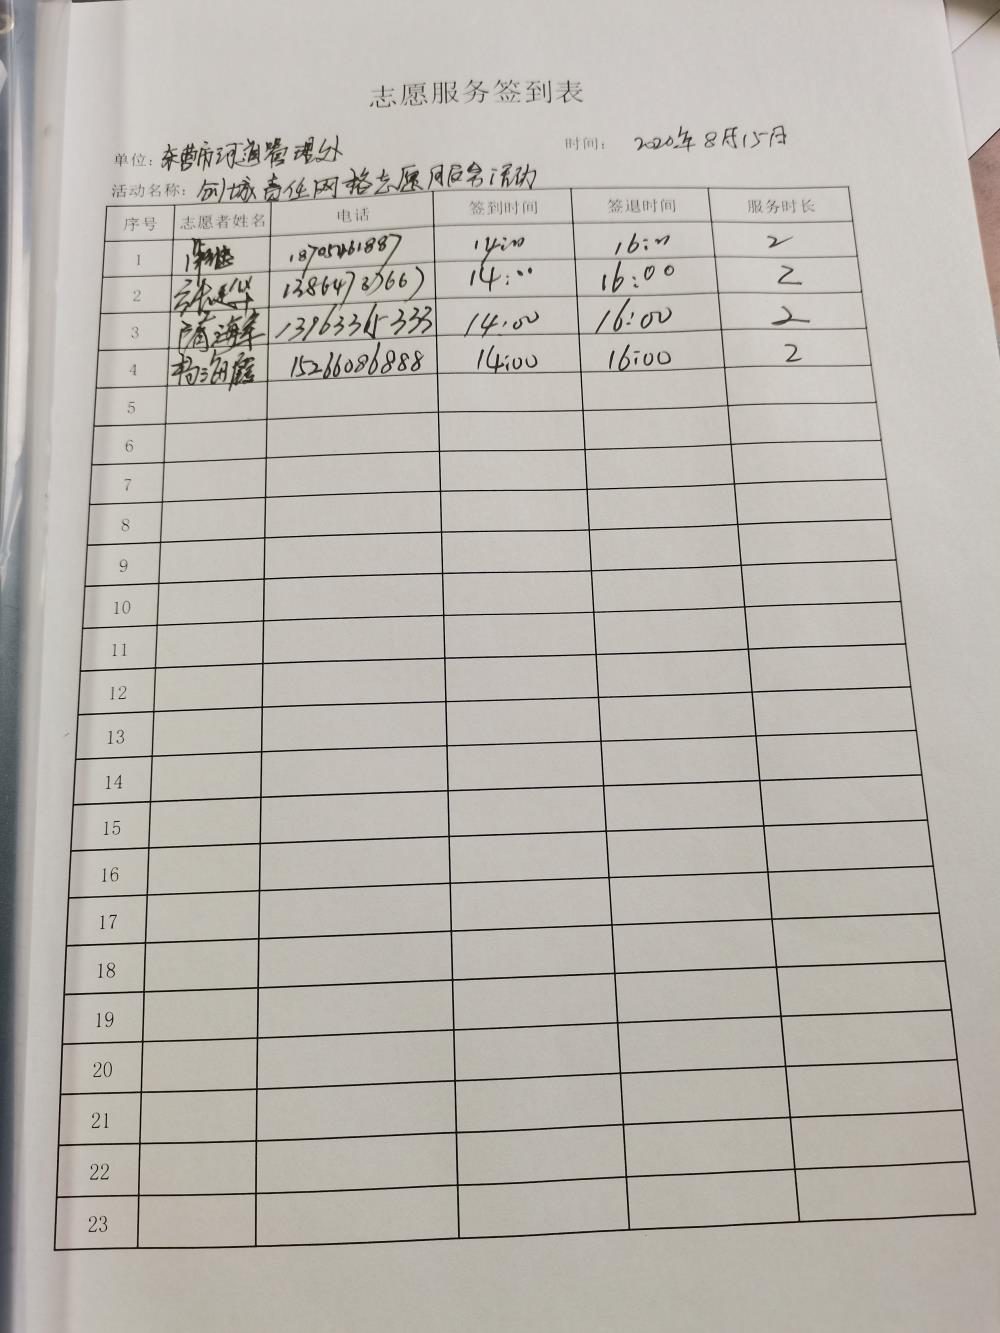 志愿服务签到表
单位：东营市河道管理处 时间： 2020年8月15日
活动名称：创城责任网格志愿服务活动
序号 志愿者姓名 电话 签到时间 签退时间 服务时长
1 18705461887 14:00 16:00 2
2 14:00 16:00 2
3 海军 13963365333 14:00 16:00 2
4 杨海霞 15266086888 14:00 16:00 2
5
6
7
8
9
10
11
12
13
14
15
16
17
18
19
20
21
22
23